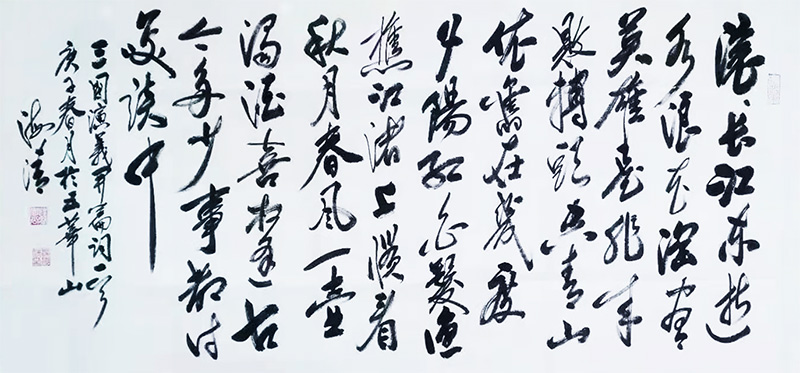 滚滚长江东逝
水浪花淘尽
英雄是非成
败转头空青山
依舊在幾度
夕陽红白髮渔
樵江渚上惯看
秋月春风一壶
濁酒喜相逢古
今多少事都付
笑谈中
三国演義开篇词一首
庚子春月於五華山
海清